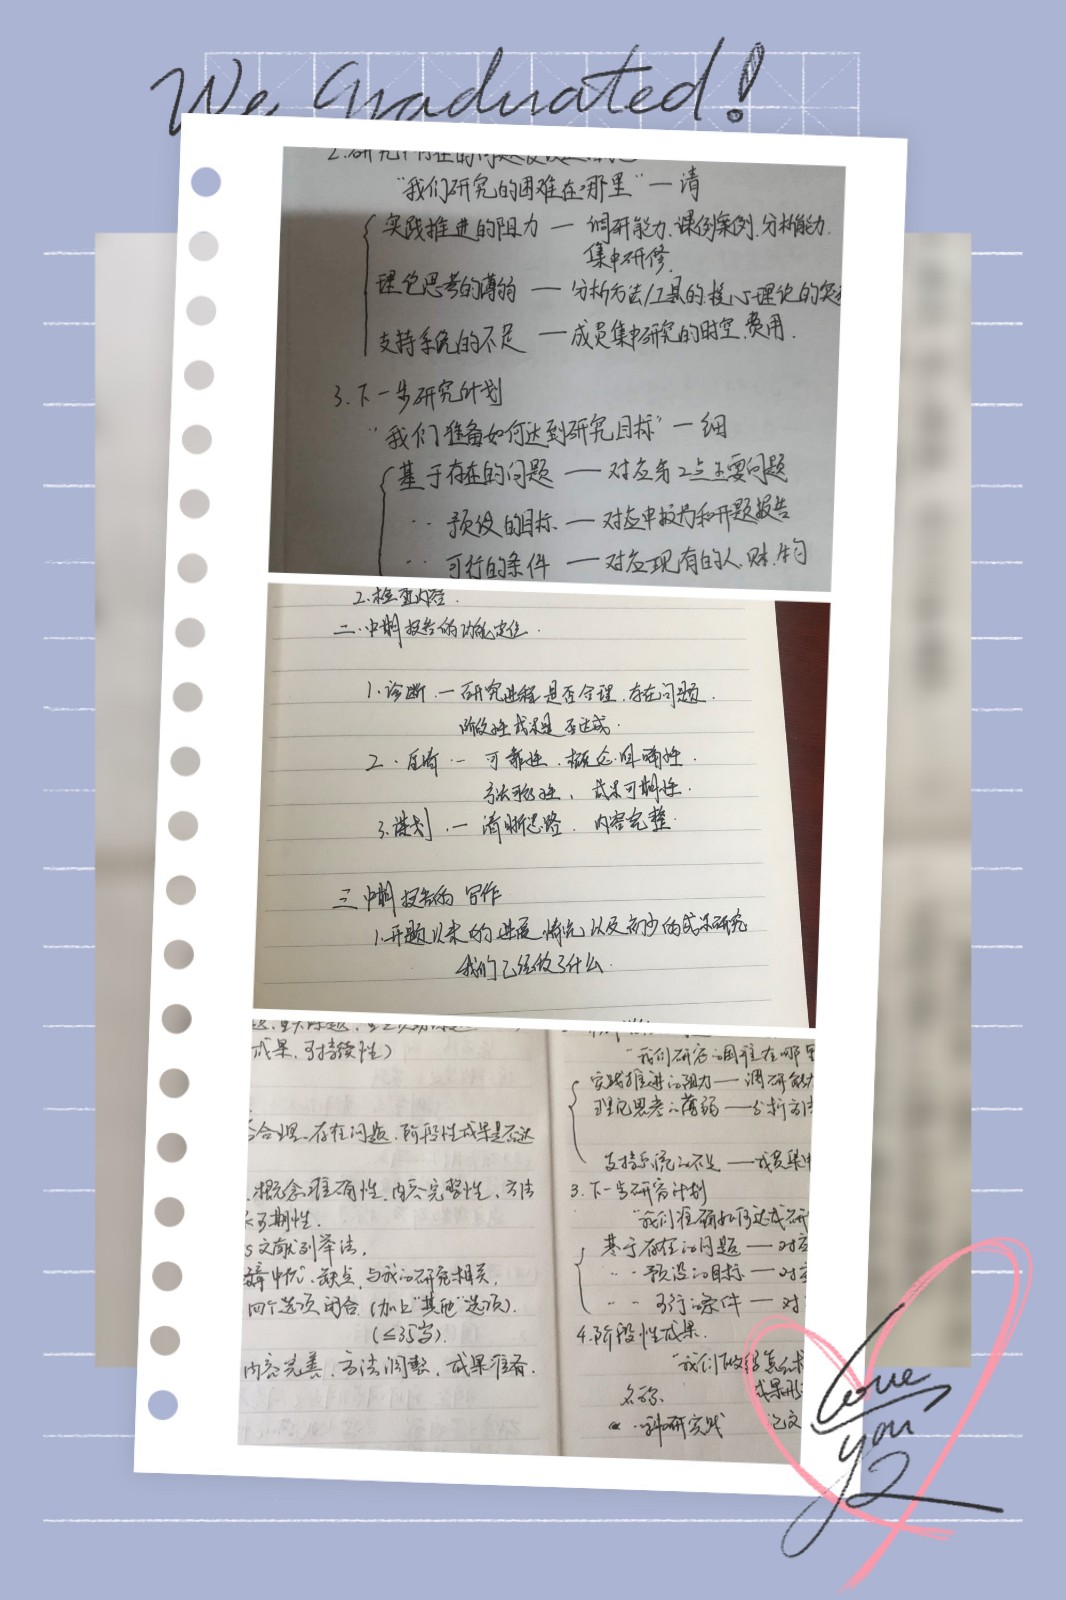 We Graduated!
2.研究中存在的问题
"我们研究的困难在哪里"一清
实践推进的阻力 — 调研能力、课例案例、分析能力、
集中研修、
理论思考的薄弱 — 分析方法/工具的、核心理论的
支持系统的不足 — 成员集中研究的时空、费用.
3.下一步研究计划
"我们准备如何达到研究目标"一细
基于存在的问题 — 对应第2点主要问题
‥ 预设的目标 — 对应申报书和开题报告
‥ 可行的条件 — 对应现有的人、财、物
2.检查内容.
二.中期报告的功能定位.
1.诊断.一研究进程是否合理.存在问题.
阶段性成果是否达成.
2. 一 可靠性、概念准确性.
方法 成果可期性.
3.谋划.一 清晰思路.内容完整.
三中期报告的写作
1.开题以来的进展情况以及初步的成果研究
我们已经做了什么.
成果,可持续性)
否合理、存在问题、阶段性成果是否达
、概念准确性、内容完整性、方法
可期性.
文献列举法,
中优、缺点,与我的研究相关,
四个选项闭合(加上"其他"选项).
(≤35岁).
内容完善、方法调整、成果准备.
"我们研究的困难在哪里
实践推进的阻力 — 调研能力
理论思考的薄弱 — 分析方法
支持系统的不足 — 成员集中
3.下一步研究计划
"我们准确如何达成研
基于存在的问题 — 对应
‥ 预设的目标 — 对应
‥ 可行的条件 — 对
4.阶段性成果.
"我们
名称. 成果形
科研实践 论文
Love
you